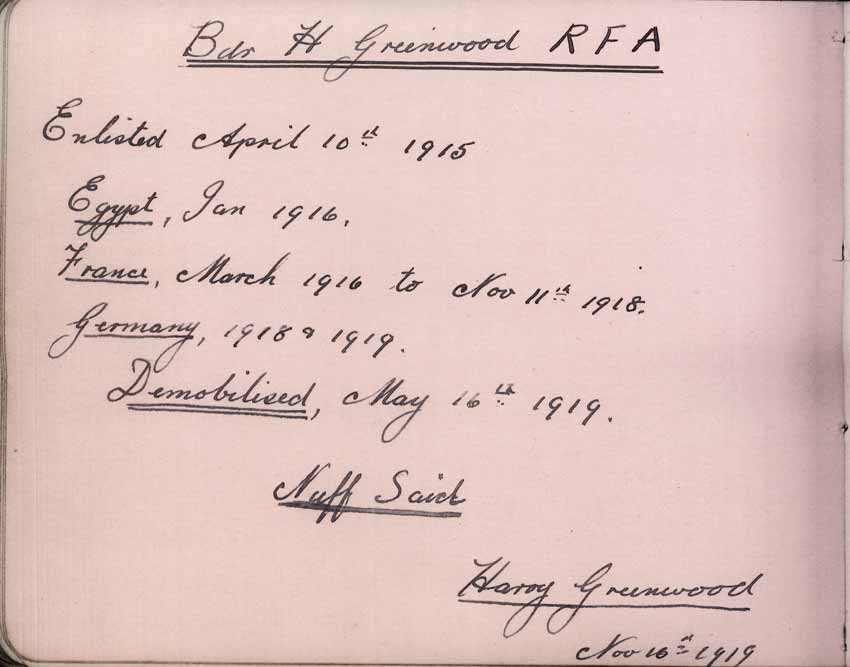 Bdr H Greenwood R F A
Enlisted April 10th 1915
Egypt, Jan 1916.
France, March 1916 to Nov 11th 1918.
Germany, 1918 & 1919.
Demobilised, May 16th 1919.
Nuff Said
Harry Greenwood
Nov 16th 1919